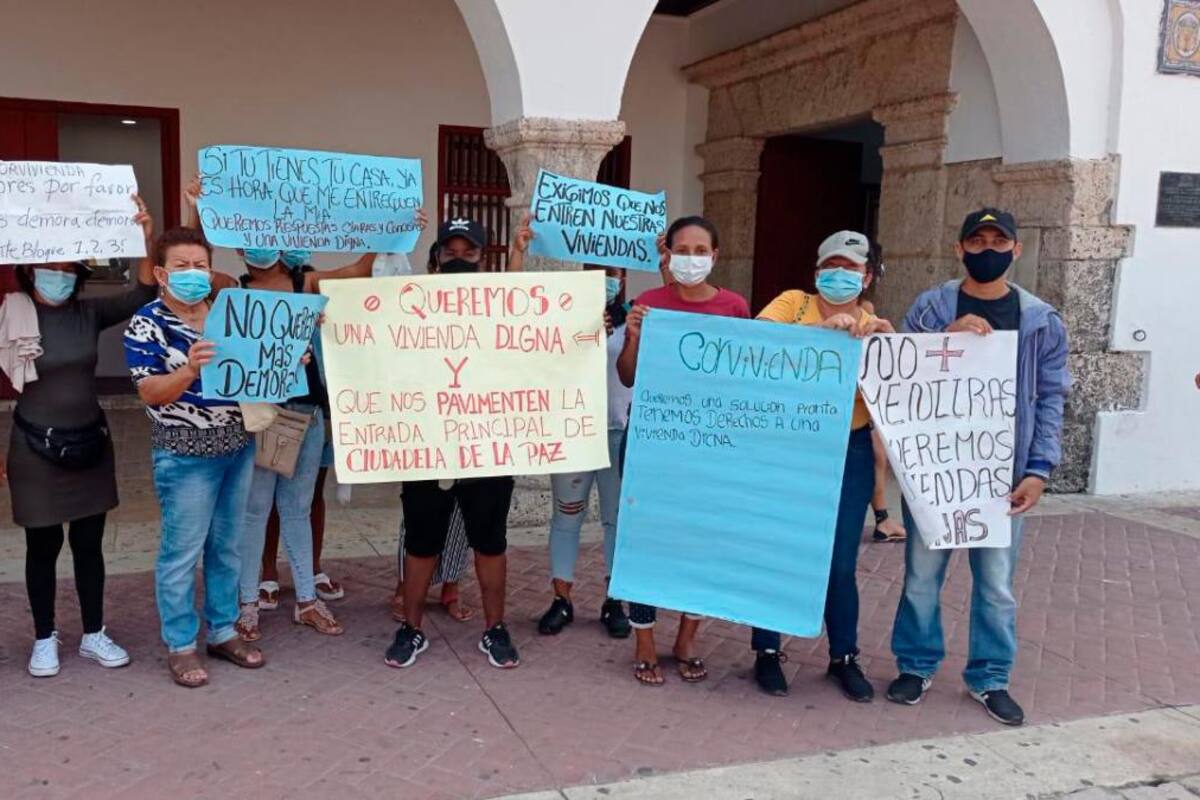 ORVIVIENDA
ores Por favor
s demora demora
te Bloque 1, 2, 3,
SI TU TIENES TU CASA, YA
ES HORA QUE ME ENTREGUEN
LA MIA
QUEREMOS RESPUESTAS CLARAS Y
Y UNA VIVIENDA DIGNA.
EXIGIMOS QUE NOS
ENTREN NUESTRAS
VIVIENDAS.
NO QUEREM
MAS
DEMORA
QUEREMOS
UNA VIVIENDA DIGNA
Y
QUE NOS PAVIMENTEN LA
ENTRADA PRINCIPAL DE
CIUDADELA DE LA PAZ
CORVIVIENDA
Queremos una solucion pronta
Tenemos Derechos a una
Vivienda Digna.
NO +
MENTIRAS
QUEREMOS
VIENDAS
NAS